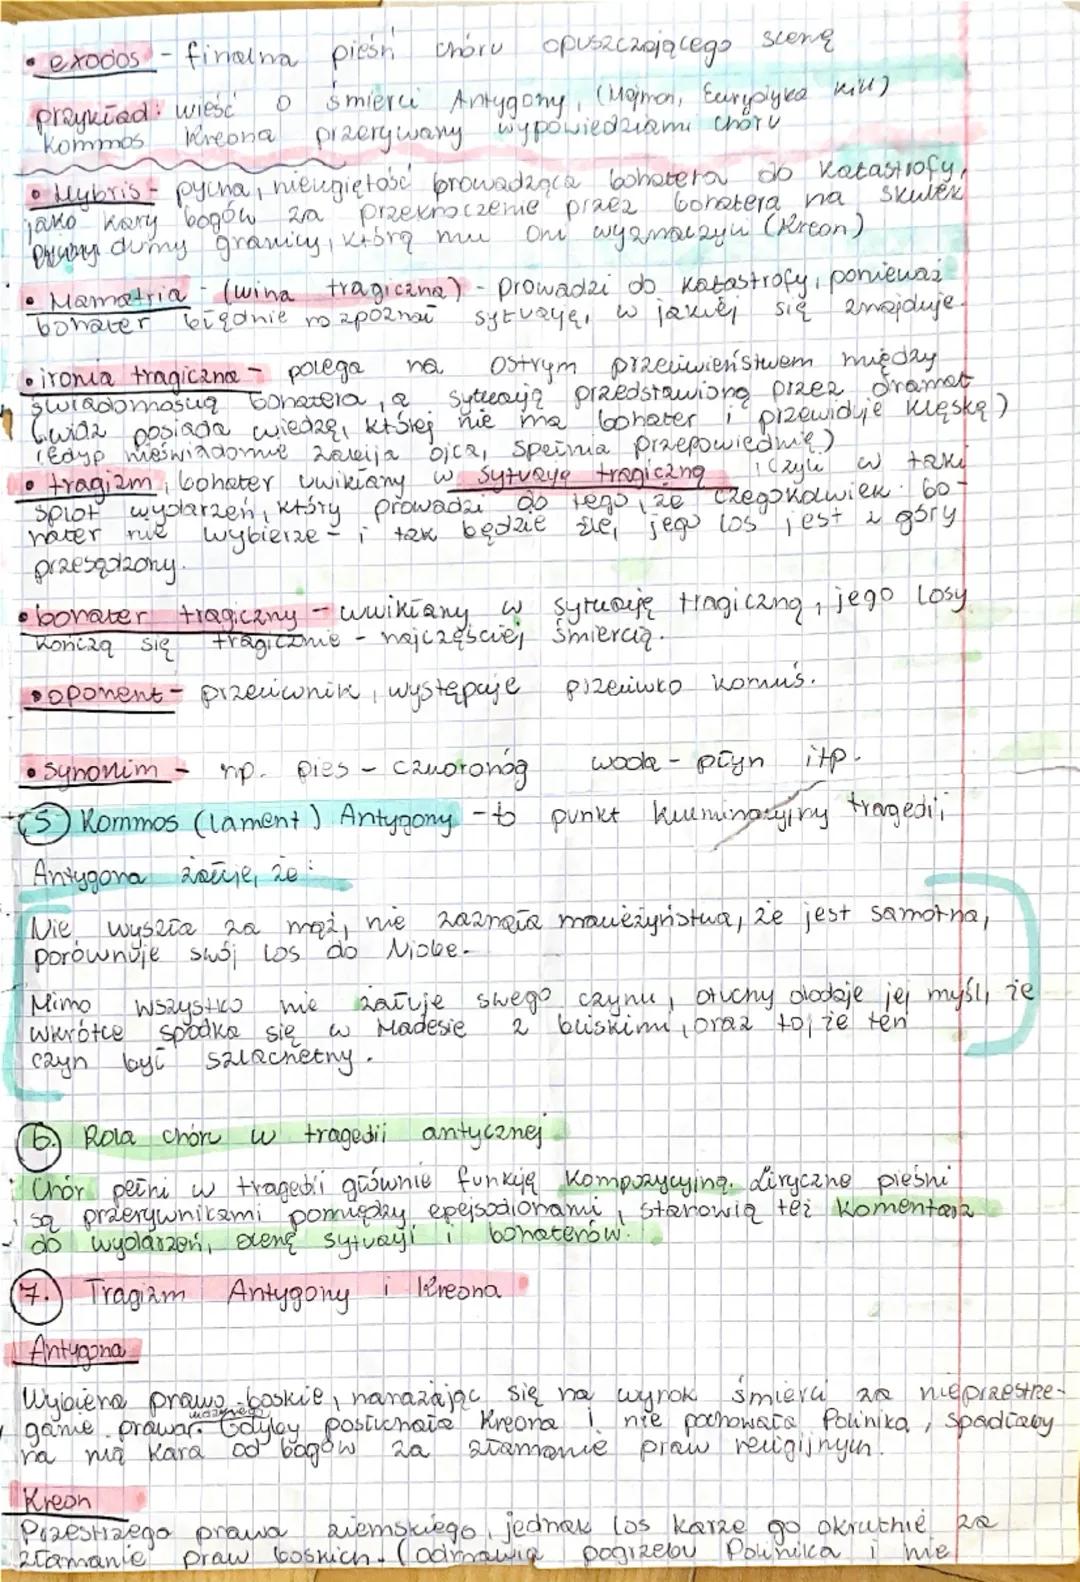 • exodos - finalna pieśń chóru opuszczającego scenę
przykład: wieść o śmierci Antygony, (Hajmon, Eurydyka kill)
kommos Kreona przerywany wypowiedziami chóru
• Hybris - pycha, nieugiętość prowadząca bohatera do katastrofy,
jako kary bogów za przekroczenie przez bohatera na skutek
dumy granicy, którą mu oni wyznaczyli (Kreon)
• Hamatria - (wina tragiczna) - prowadzi do katastrofy, ponieważ
bohater błędnie rozpoznał sytuację, w jakiej się znajduje.
• ironia tragiczna - polega na ostrym przeciwieństwem między
świadomością bohatera, a sytuacją przedstawioną przez dramat
(widz posiada wiedzę, której nie ma bohater i przewiduje klęskę)
(Edyp nieświadomie zabija ojca, spełnia przepowiednię)
• tragizm, bohater uwikłany w sytuację tragiczną, czyli w taki
splot wydarzeń, który prowadzi do tego, że czegokolwiek bo-
hater nie wybierze - i tak będzie źle, jego los jest z góry
przesądzony.
• bohater tragiczny - uwikłany w sytuację tragiczną, jego losy
kończą się tragicznie - najczęściej śmiercią.
• oponent - przeciwnik, występuje przeciwko komuś.
• synonim - np. pies - czworonóg woda - płyn itp.
5 Kommos (lament) Antygony - to punkt kulminacyjny tragedii,
Antygona żałuje, że:
Nie wyszła za mąż, nie zaznała małżeżyństwa, że jest samotna,
porównuje swój los do Niobe.
Mimo wszystko nie żałuje swego czynu, otuchy dodaje jej myśl, że
wkrótce spotka się w Hadesie z bliskimi, oraz to, że ten
czyn był szlachetny.
6. Rola chóru w tragedii antycznej
Chór pełni w tragedii głównie funkcję kompozycyjną. Liryczne pieśni
są przerywnikami pomiędzy epejsodionami, stanowią też komentarz
do wydarzeń, ocenę sytuacji i bohaterów.
7. Tragizm Antygony i Kreona
Antygona
Wybiera prawo boskie, narażając się na wyrok śmierci za nieprzestrze-
ganie prawa. Gdyby posłuchała Kreona i nie pochowała Polinika, spadłaby
na nią kara od bogów za złamanie praw religijnych.
Kreon
Przestrzega prawa ziemskiego, jednak los karze go okrutnie za
złamanie praw boskich. (odmawia pogrzebu Polinika i nie